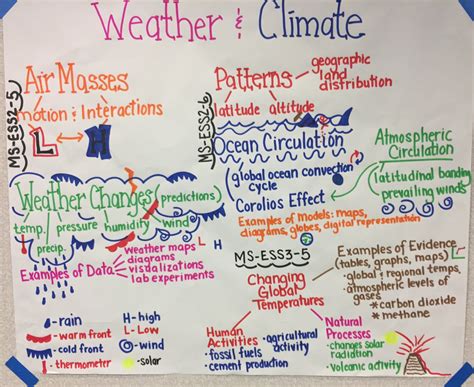 Weather & Climate
MS-ESS2-5
Air Masses
motion & Interactions
L H
Weather Changes (predictions)
temp. pressure humidity wind
precip.
Examples of Data
weather maps
diagrams
visualizations
lab experiments
L H
- rain
- warm front
- cold front
- thermometer
H - high
L - Low
- wind
- solar
MS-ESS2-6
Patterns
geographic
land
distribution
latitude altitude
Ocean Circulation
(global ocean convection
cycle
Coriolis Effect
Atmospheric
Circulation
(latitudinal banding
prevailing winds)
Examples of Models: maps,
diagrams, globes, digital representation
MS-ESS3-5
Changing
Global
Temperatures
Examples of Evidence
(tables, graphs, maps)
• global & regional temps.
• atmospheric levels of
gases
* carbon dioxide
* methane
Human
Activities
• fossil fuels
• cement production
• agricultural
activity
Natural
Processes
• changes solar
radiation
• Volcanic activity